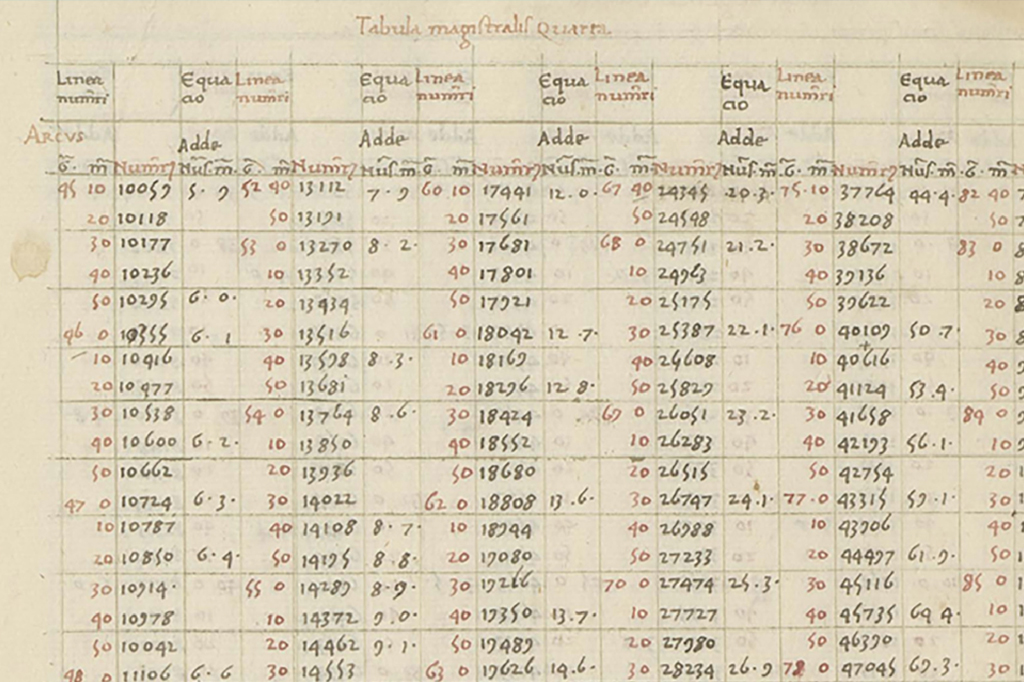 Tabula magistralis Quarta
Linea numeri Equa cio Linea numeri Equa cio Linea numeri Equa cio Linea numeri Equa cio Linea numeri Equa cio Linea numeri
Arcus Adde Adde Adde Adde Adde
G. m Numerus Nus.m. G. m Numerus Nus.m. G. m Numerus Nus.m. G. m Numerus Nus.m. G. m Numerus Nus.m. G. m
45 10 10059 5.9 52 40 13112 7.9 60 10 17441 12.0. 67 40 24345 20.3. 75.10 37764 44.4. 82 40
20 10118 50 13191 20 17561 50 24548 20 38208 50
30 10177 53 0 13270 8.2. 30 17681 68 0 24751 21.2. 30 38672 83 0
40 10236 10 13352 40 17801 10 24963 40 39136 10
50 10295 6.0. 20 13434 50 17921 20 25175 50 39622 20
46 0 10355 6.1 30 13516 61 0 18042 12.7. 30 25387 22.1. 76 0 40109 50.7. 30
10 10416 40 13598 8.3. 10 18169 40 25608 10 40616 40
20 10477 50 13681 20 18296 12.8. 50 25829 20 41124 53.4. 50
30 10538 54 0 13764 8.6. 30 18424 69 0 26051 23.2. 30 41658 84 0
40 10600 6.2. 10 13850 40 18552 10 26283 40 42193 56.1. 10
50 10662 20 13936 50 18680 20 26515 50 42754 20
47 0 10724 6.3. 30 14022 62 0 18808 13.6. 30 26747 24.1. 77.0 43315 59.1. 30
10 10787 40 14108 8.7. 10 18944 40 26988 10 43906 40
20 10850 6.4. 50 14195 8.8. 20 19080 50 27233 20 44497 61.9. 50
30 10914. 55 0 14289 8.9. 30 70 0 27474 25.3. 30 45116 85 0
40 10978 10 14372 9.0. 40 19350 13.7. 10 27727 40 45735 64 4. 10
50 10042 20 14462 9.1. 50 19489 20 27980 50 46390 20
48 0 11106 6.6 30 14553 63 0 19626 14.6. 30 28234 26.9 78 0 47045 69.3. 30